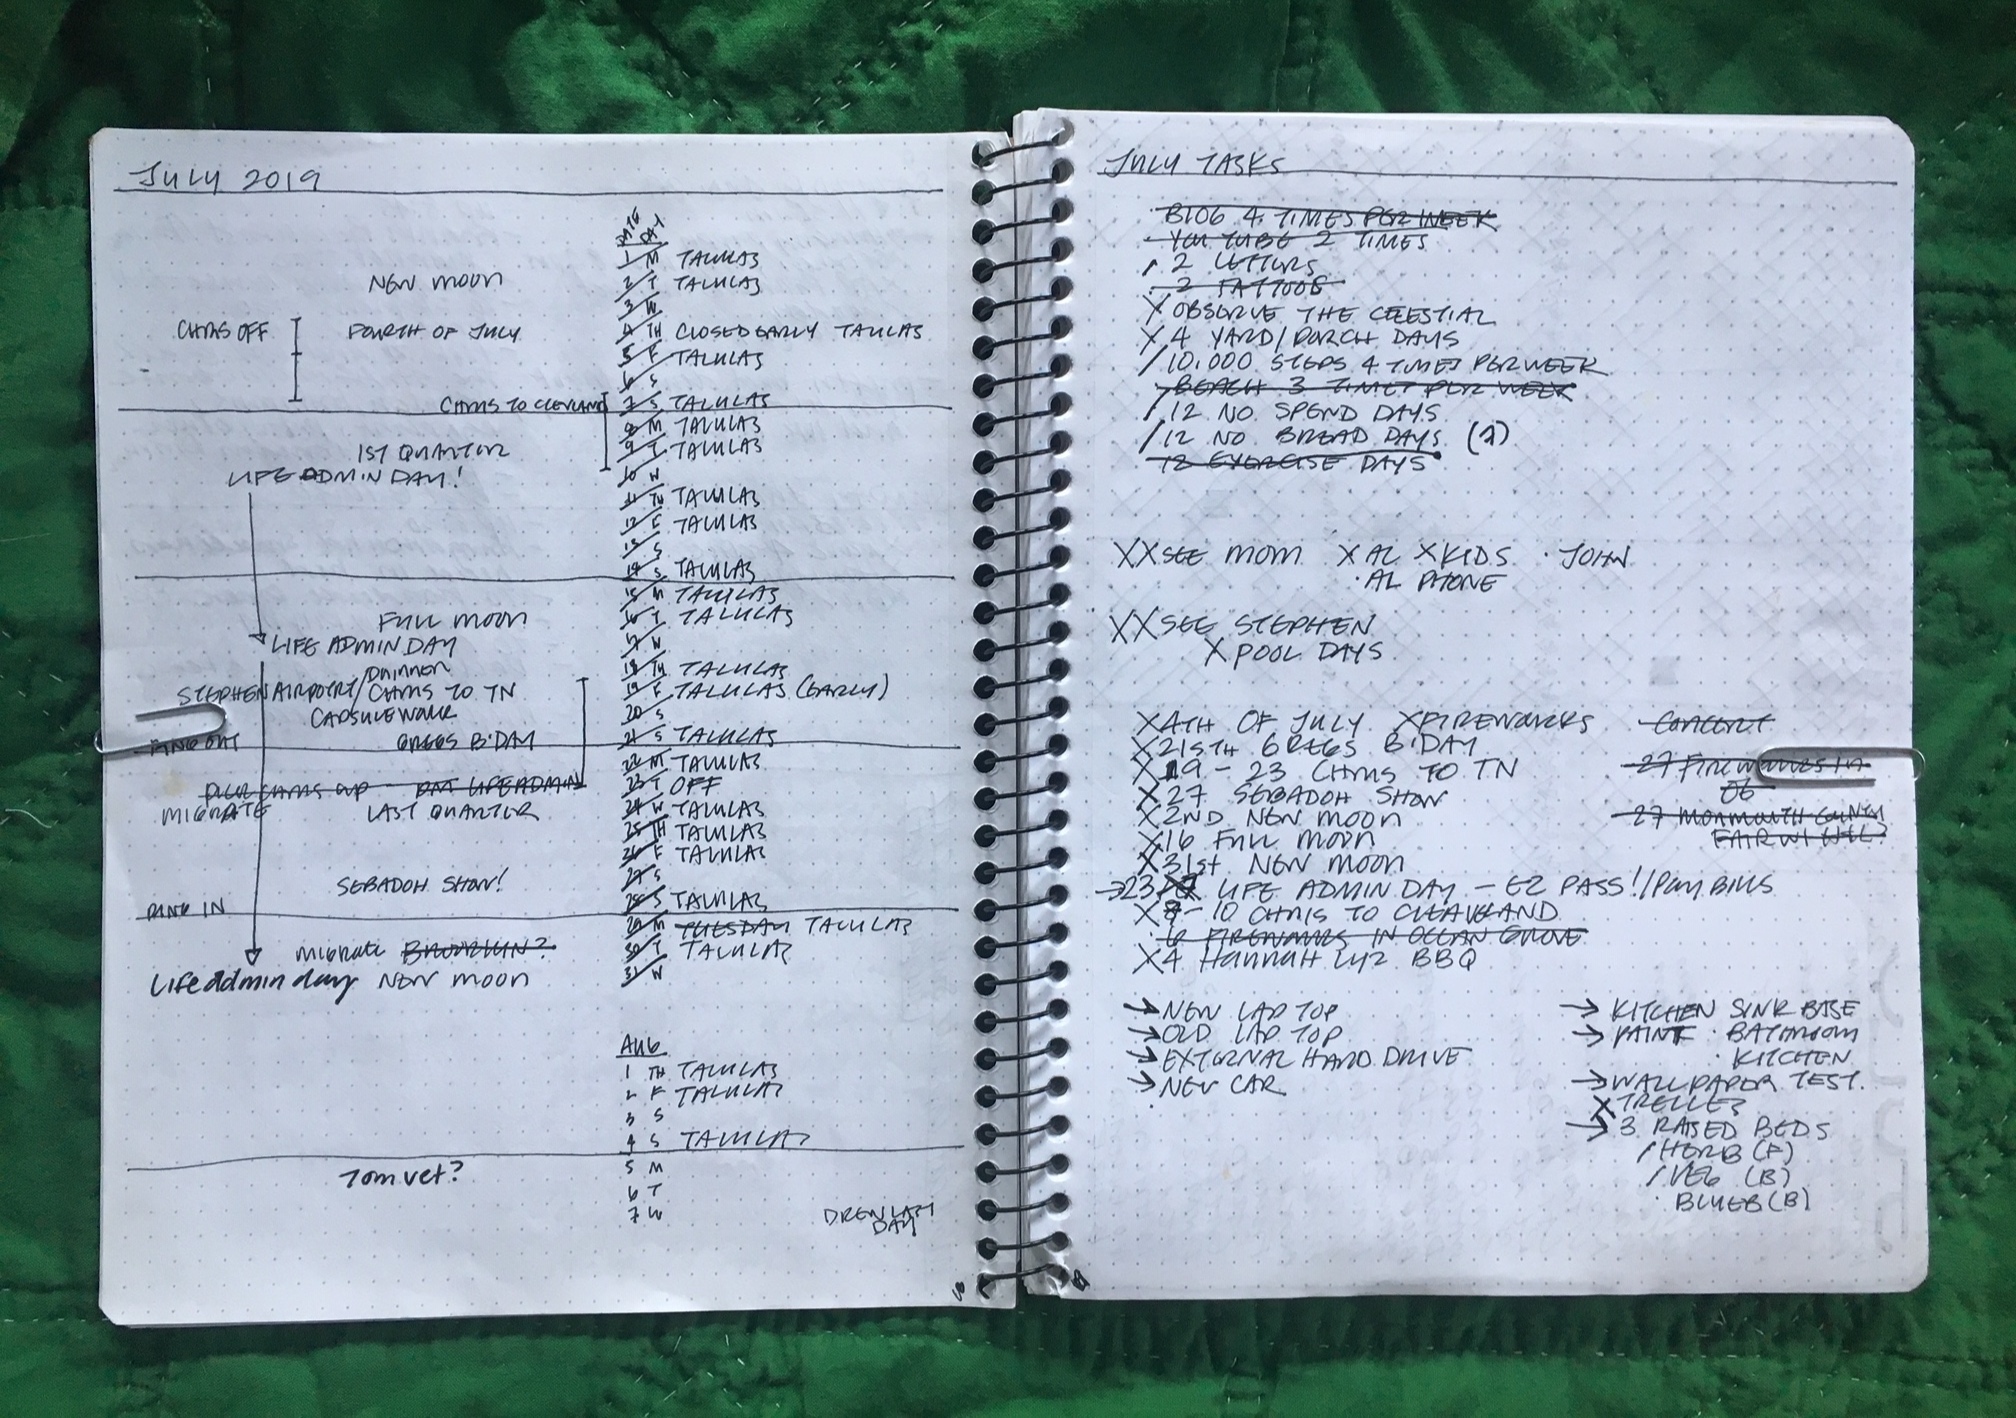 JULY 2019
DATE DAY
1 M TALULAS
NEW MOON 2 T TALULAS
3 W
CHRIS OFF FOURTH OF JULY 4 TH CLOSED EARLY TALULAS
5 F TALULAS
6 S
CHRIS TO CLEVLAND 7 S TALULAS
8 M TALULAS
1ST QUARTER 9 T TALULAS
LIFE ADMIN DAY! 10 W
11 TH TALULAS
12 F TALULAS
13 S
14 S TALULAS
15 M TALULAS
FULL MOON 16 T TALULAS
LIFE ADMIN DAY 17 W
DRINNER 18 TH TALULAS
STEPHEN AIRPORT/ CHRIS TO TN 19 F TALULAS (EARLY)
CAPSULE WORK 20 S
GREGS B'DAY 21 S TALULAS
OUT
22 M TALULAS
PICK CHRIS UP LIFE ADMIN 23 T OFF
MIGRATE LAST QUARTER 24 W TALULAS
25 TH TALULAS
26 F TALULAS
SEBADOH SHOW! 27 S
IN 28 S TALULAS
29 M TUESDAY TALULAS
MIGRATE BROOKLYN? 30 T TALULAS
Life admin day NEW MOON 31 W
AUG
1 TH TALULAS
2 F TALULAS
3 S
4 S TALULAS
Tom vet? 5 M
6 T
7 W DREW LAST
DAY
JULY TASKS
BLOG 4 TIMES PER WEEK
YOU TUBE 2 TIMES
/ 2 LETTERS
2 TATTOOS
X OBSERVE THE CELESTIAL
X 4 YARD/PORCH DAYS
/ 10,000 STEPS 4 TIMES PER WEEK
BEACH 3 TIMES PER WEEK
/ 12 NO SPEND DAYS
/ 12 NO BREAD DAYS (1)
12 EXERCISE DAYS
XX SEE MOM X AL X KIDS · JOHN
· AL PHONE
XX SEE STEPHEN
X POOL DAYS
X 4TH OF JULY X FIREWORKS CONCERT
X 21STH GREGS B'DAY
X 19 - 23 CHRIS TO TN 27 FIREWORKS IN
OG
X 27 SEBADOH SHOW
X 2ND NEW MOON 27 MONMOUTH COUNTY
FAIR W/
X 16 FULL MOON
X 31st NEW MOON
→ 23 LIFE ADMIN DAY - EZ PASS!/PAY BILLS
X 8 - 10 CHRIS TO CLEAVELAND
6 FIREWORKS IN OCEAN GROVE
X 4 HANNAH LYZ BBQ
→ NEW LAP TOP
→ OLD LAP TOP
→ EXTERNAL HARD DRIVE
→ NEW CAR
→ KITCHEN SINK BASE
→ PAINT · BATHROOM
· KITCHEN
→ WALLPAPER TEST.
X TRELLES
→ 3 RAISED BEDS
/ HERB (F)
/ VEG (B)
· BLUEB (B)